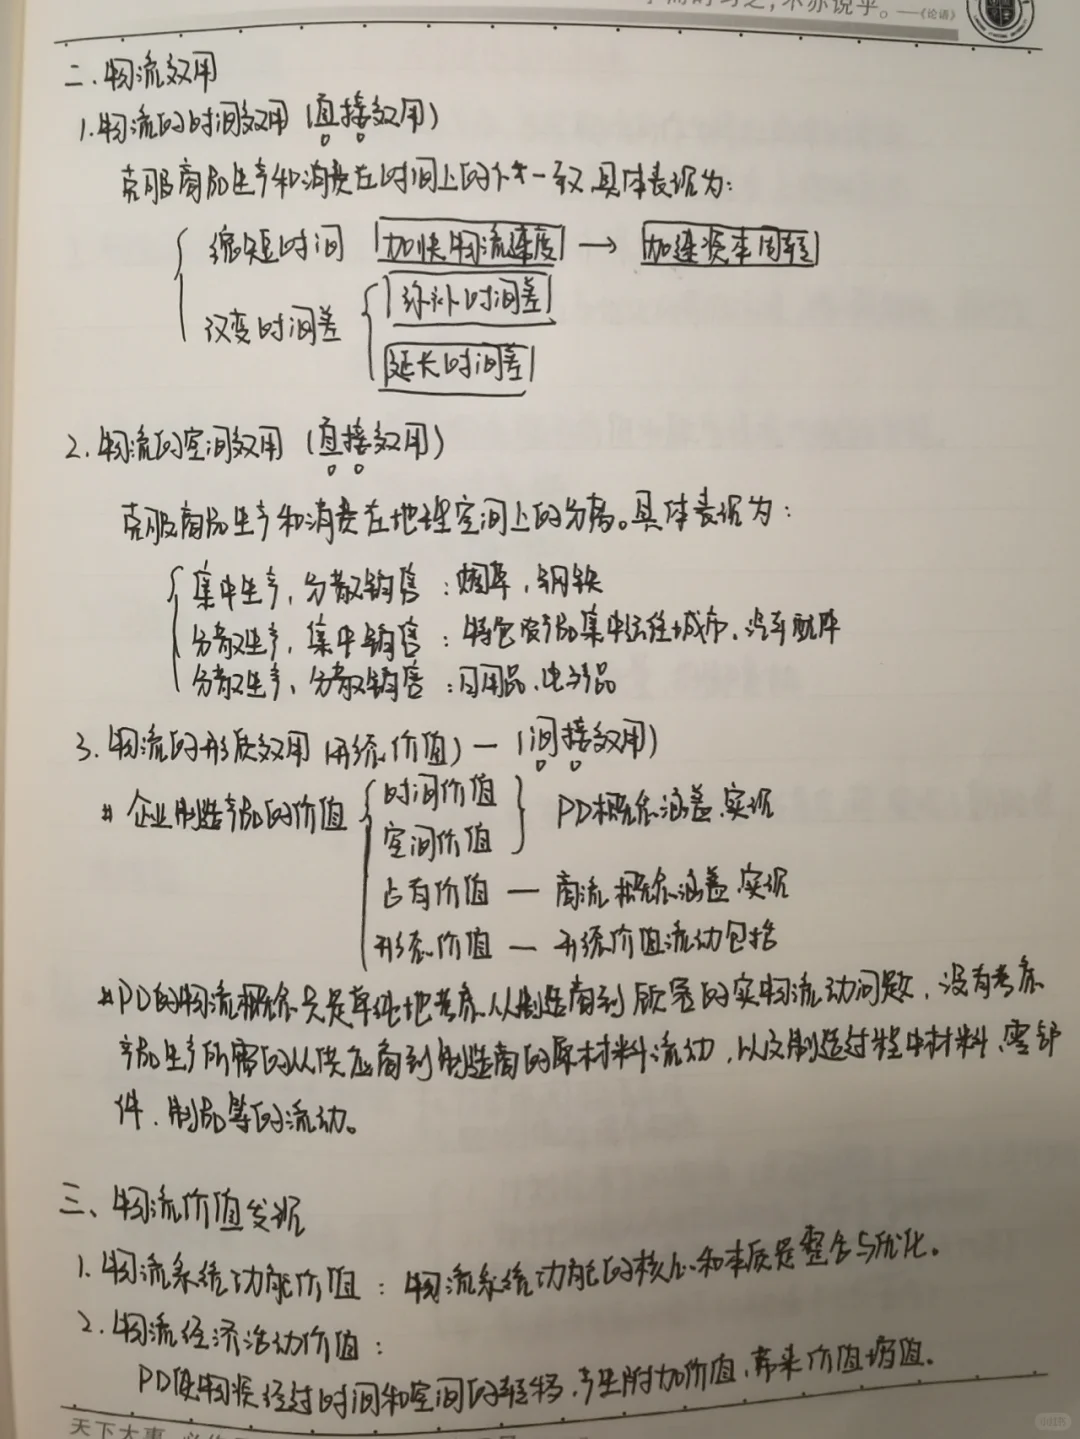 不亦说乎。——《论语》
二.物流效用
1.物流的时间效用(直接效用)
克服商品生产和消费在时间上的不一致,具体表现为:
缩短时间 加快物流速度 → 加速资本周转
改变时间差 弥补时间差
延长时间差
2.物流的空间效用(直接效用)
克服商品生产和消费在地理空间上的分离。具体表现为:
集中生产,分散销售:烟草,钢铁
分散生产,集中销售:特色农产品集中运往城市、汽车配件
分散生产、分散销售:日用品、电子产品
3.物流的形质效用(形态价值)—(间接效用)
# 企业制造产品的价值 时间价值
空间价值 PD概念涵盖、实现
占有价值 — 商流概念涵盖、实现
形态价值 — 形态价值流动包括
#PD的物流概念只是单纯地考虑从制造商到顾客的实物流动问题,没有考虑
产品生产所需的从供应商到制造商的原材料流动,以及制造过程中材料、零部
件、制品等的流动。
三、物流价值发现
1.物流系统功能价值:物流系统功能的核心和本质是整合与优化。
2.物流经济活动价值:
PD使物质经过时间和空间的转移,产生附加价值,带来价值增值。
天下大事